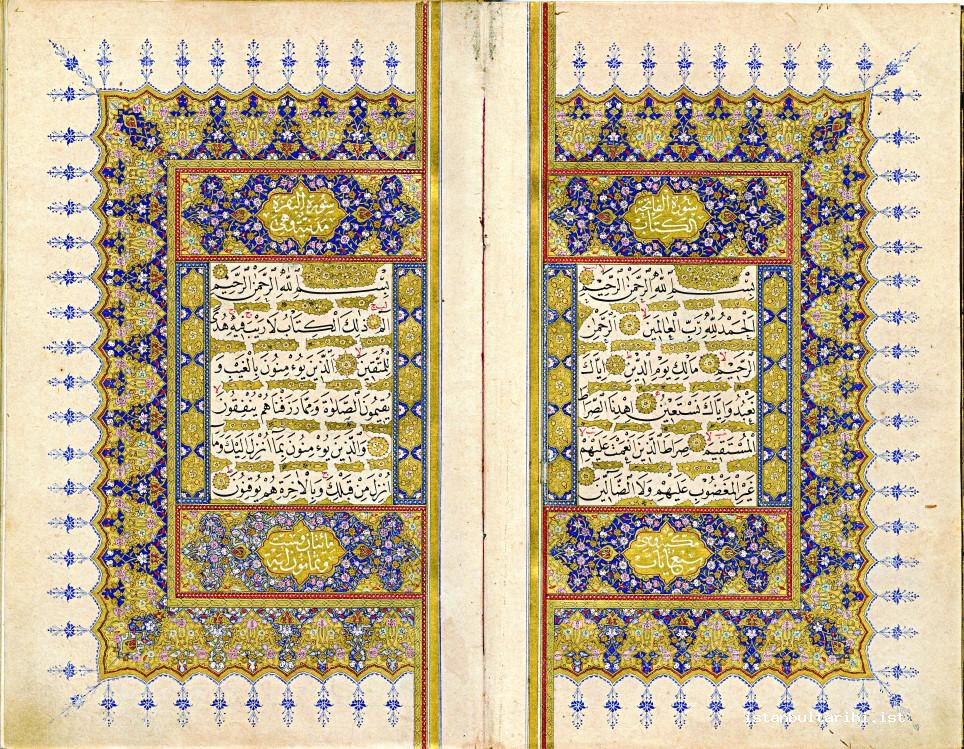 سورة الفاتحة
الكتاب
بسم الله الرحمن الرحيم
الحمد لله رب العالمين الرحمن
الرحيم مالك يوم الدين اياك
نعبد واياك نستعين اهدنا الصراط
المستقيم صراط الذين انعمت عليهم
غير المغضوب عليهم ولا الضالين
مكية وهي
سبع ايات
سورة البقرة
مدنية وهي
بسم الله الرحمن الرحيم
الم ذلك الكتاب لا ريب فيه هدى
للمتقين الذين يؤمنون بالغيب و
يقيمون الصلوة ومما رزقناهم ينفقون
والذين يؤمنون بما انزل اليك وما
انزل من قبلك وبالاخرة هم يوقنون
مائتان وست
وثمانون اية
istanbultarihi.ist